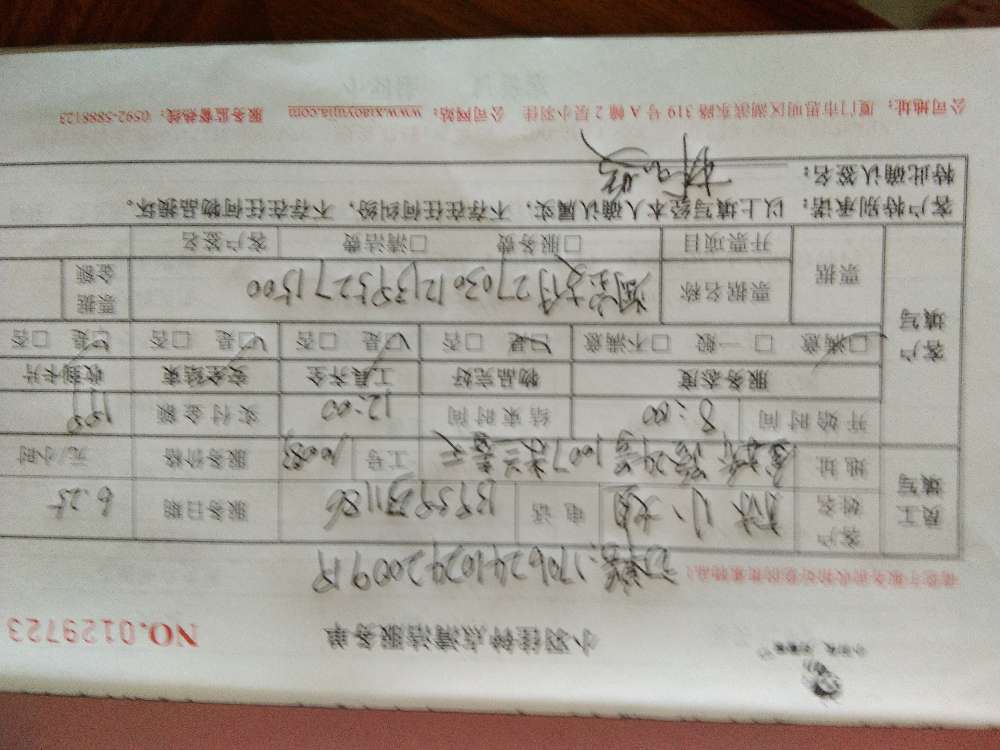 小羽佳钟点清洁服务单 NO.0129723
170624102420091R
员工填写 客户姓名 林小姐 电话 服务日期 6.25
地址 24号1007 工号 10083 服务价格 元/小时
开始时间 8:00 结束时间 12:00 实付金额
客户填写 服务态度 物品完好 工具齐全 安全结束 收到卡片
□满意 □一般 □不满意 □是 □否 □是 □否 □是 □否 □是 □否
票据 票据名称 淘宝支付 票据金额
开票项目 □服务费 □清洁费 客户签名
客户特别承诺：以上填写经本人确认属实，不存在任何纠纷，不存在任何物品损坏。
特此确认签名：
公司地址：厦门市思明区湖滨东路319号A幢2层小羽佳 公司网站：www.xiaoyujia.com 服务监督热线：0592-5888123